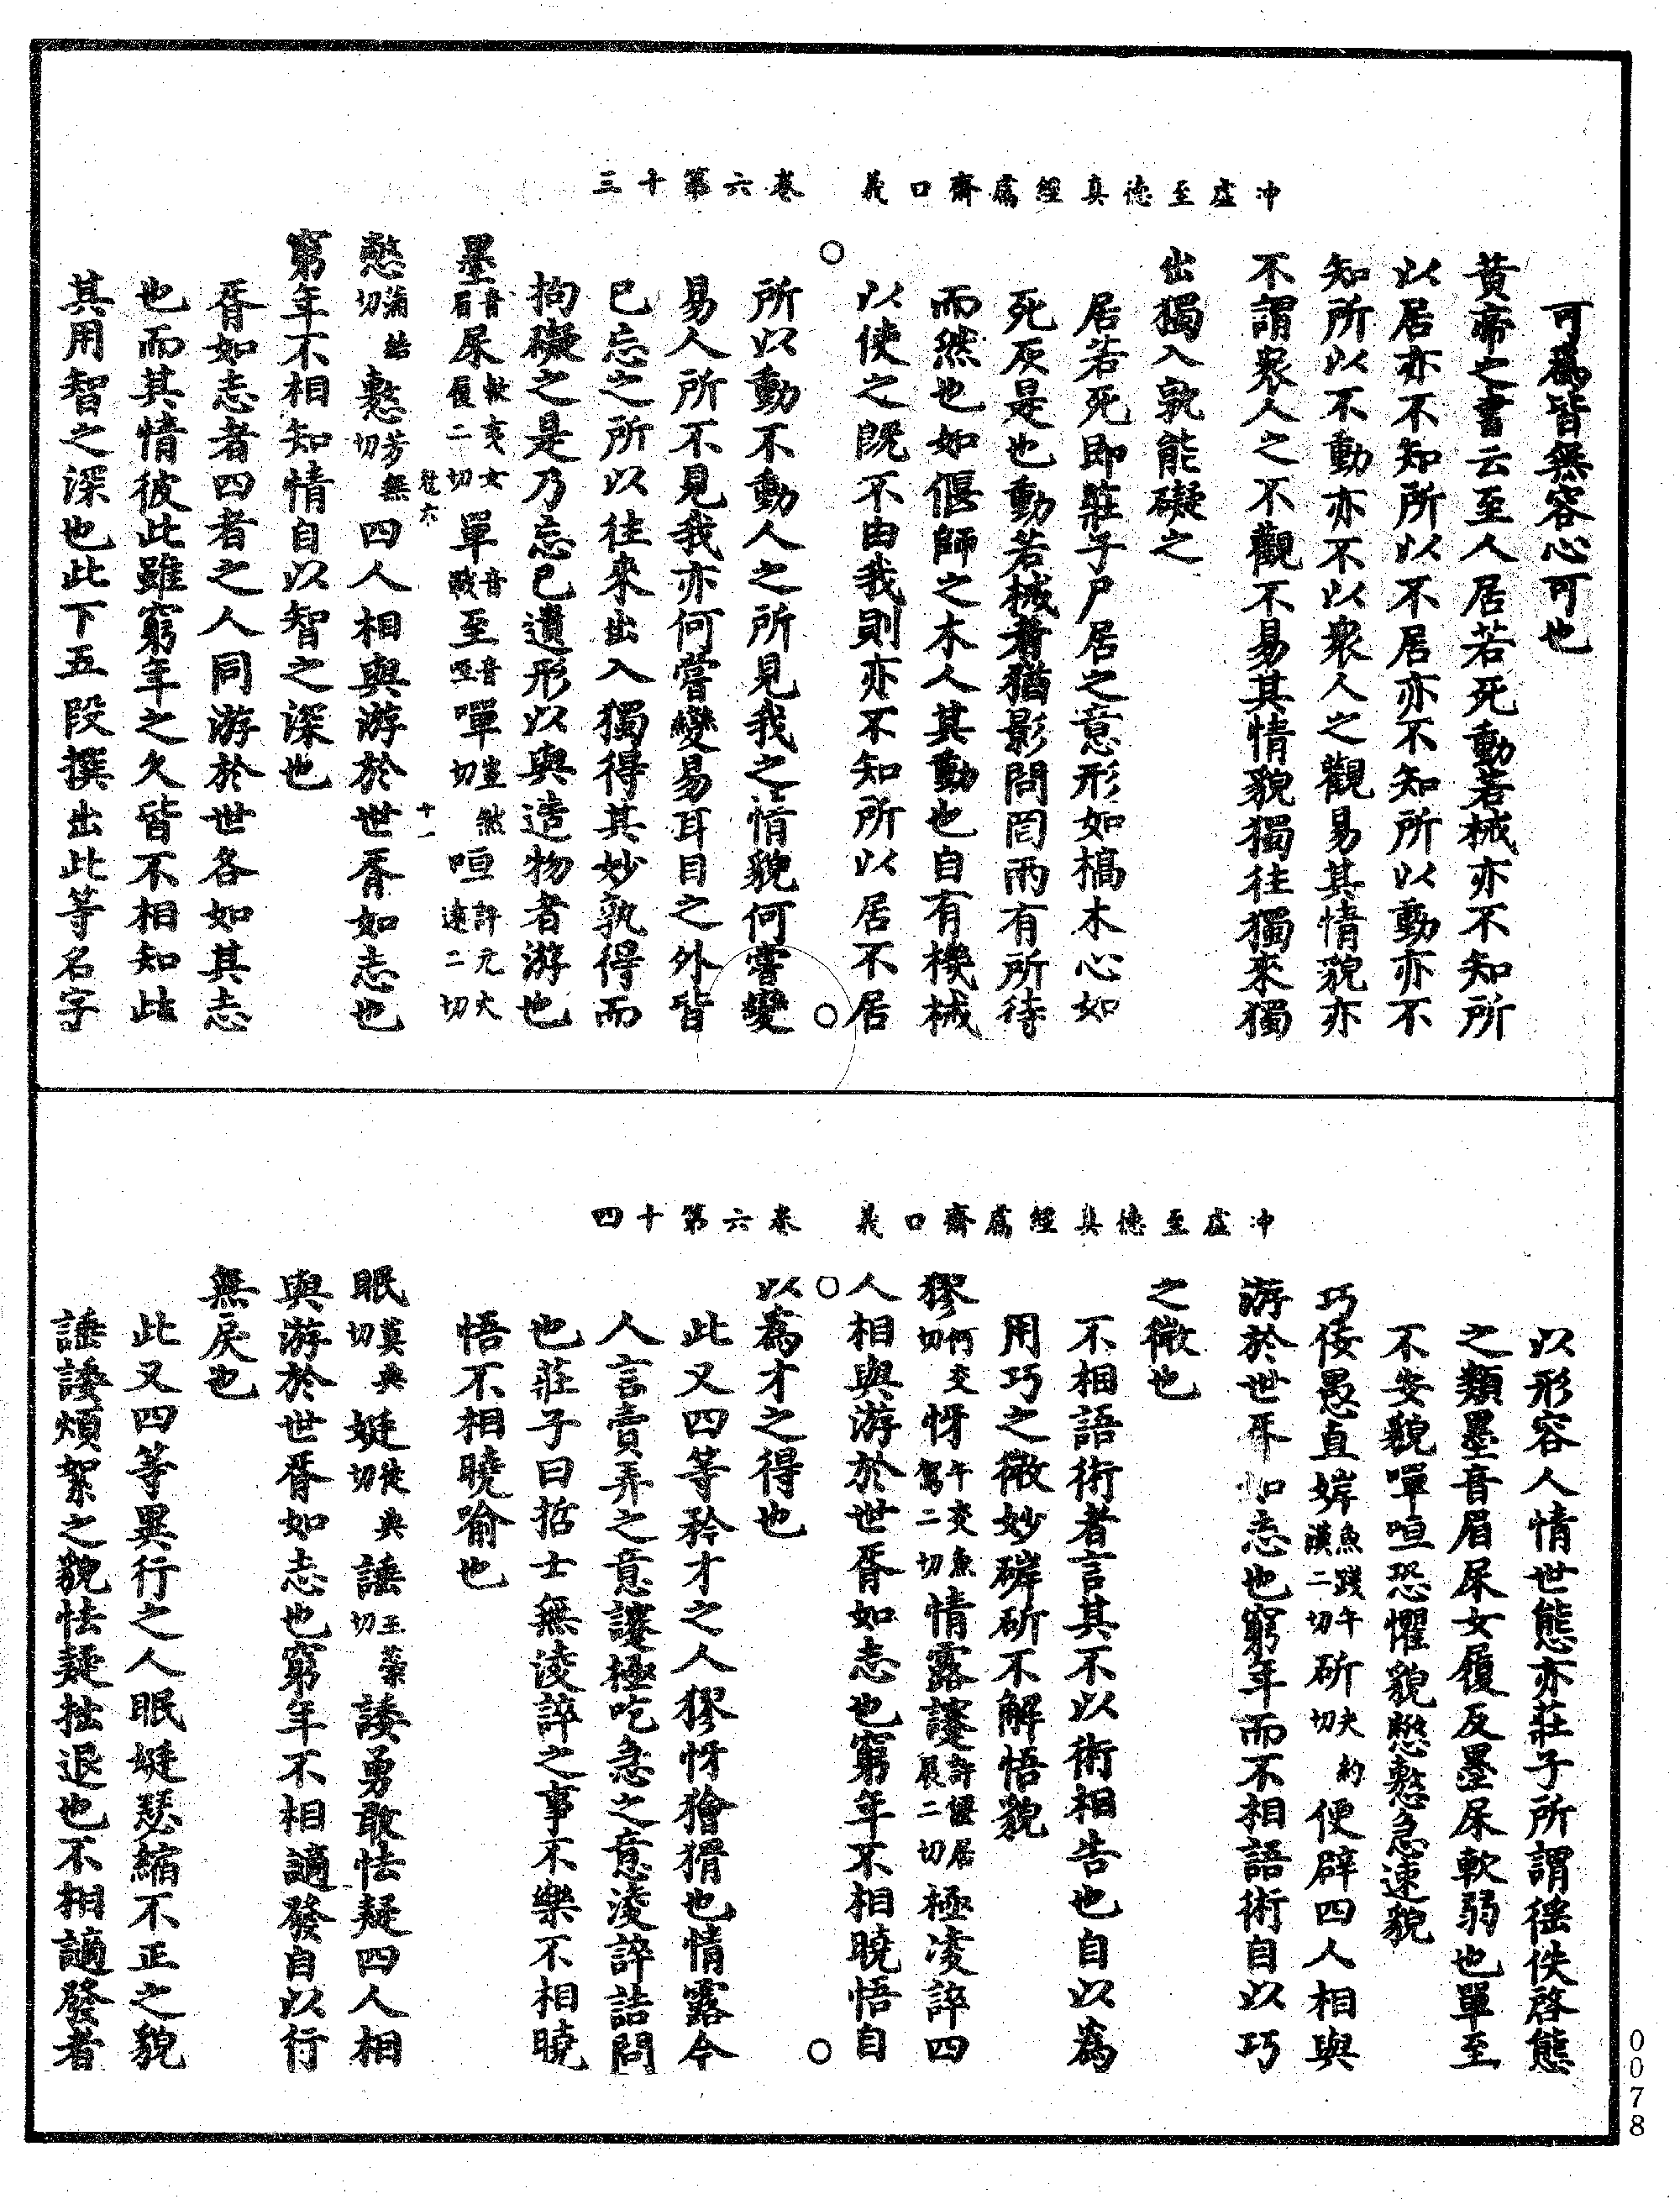 冲虛至德真經鬳齋口義　卷六第十三
可為皆無容心可也
黃帝之書云至人居若死動若械亦不知所
以居亦不知所以不居亦不知所以動亦不
知所以不動亦不以衆人之觀易其情貌亦
不謂衆人之不觀不易其情貌獨往獨來獨
出獨入孰能礙之
居若死即莊子尸居之意形如槁木心如
死灰是也動若械者猶影問罔兩有所待
而然也如偃師之木人其動也自有機械
以使之既不由我則亦不知所以居不居
所以動不動人之所見我之情貌何嘗變
易人所不見我亦何嘗變易耳目之外皆
已忘之所以往來出入獨得其妙孰得而
拘礙之是乃忘已遺形以與造物者游也
墨音眉尿敕夷女履二切單音戰至音咥嘽齒然切咺許元火遠二切
尨六　十一
憋蒲結切憼芳無切四人相與游於世胥如志也
窮年不相知情自以智之深也
胥如志者四者之人同游於世各如其志
也而其情彼此雖窮年之久皆不相知此
其用智之深也此下五段撰出此等名字
冲虛至德真經鬳齋口義　卷六第十四
以形容人情世態亦莊子所謂徭佚啓態
之類墨音眉尿女履反墨尿軟弱也單至
不安貌嘽咺恐懼貌憋憼急速貌
巧佞愚直婩魚踐午漢二切斫夫約切便辟四人相與
游於世胥如志也窮年而不相語術自以巧
之微也
不相語術者言其不以術相告也自以為
用巧之微妙婩斫不解悟貌
㺒何交切㤉午交魚駕二切情露謇許偃居展二切極凌誶四
人相與游於世胥如志也窮年不相曉悟自
以為才之得也
此又四等矜才之人㺒㤉獪猾也情露今
人言賣弄之意謇極吃急之意凌誶詰問
也莊子曰哲士無淩誶之事不樂不相曉
悟不相曉喻也
眠莫典切娗徒典切諈主蘂切諉勇敢怯疑四人相
與游於世胥如志也窮年不相讁發自以行
無戾也
此又四等異行之人眠娗瑟縮不正之貌
諈諉煩絮之貌怯疑拙退也不相讁發者
0078